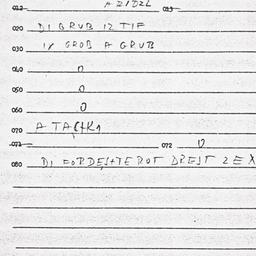 012 013
020 DI GRUB IZ TIF
030 IZ GROB A GRUB
040 0
050 0
060 0
070 A TACHKA
071 072 0
080 DI FORDESHTE ROT DREJT ZEX